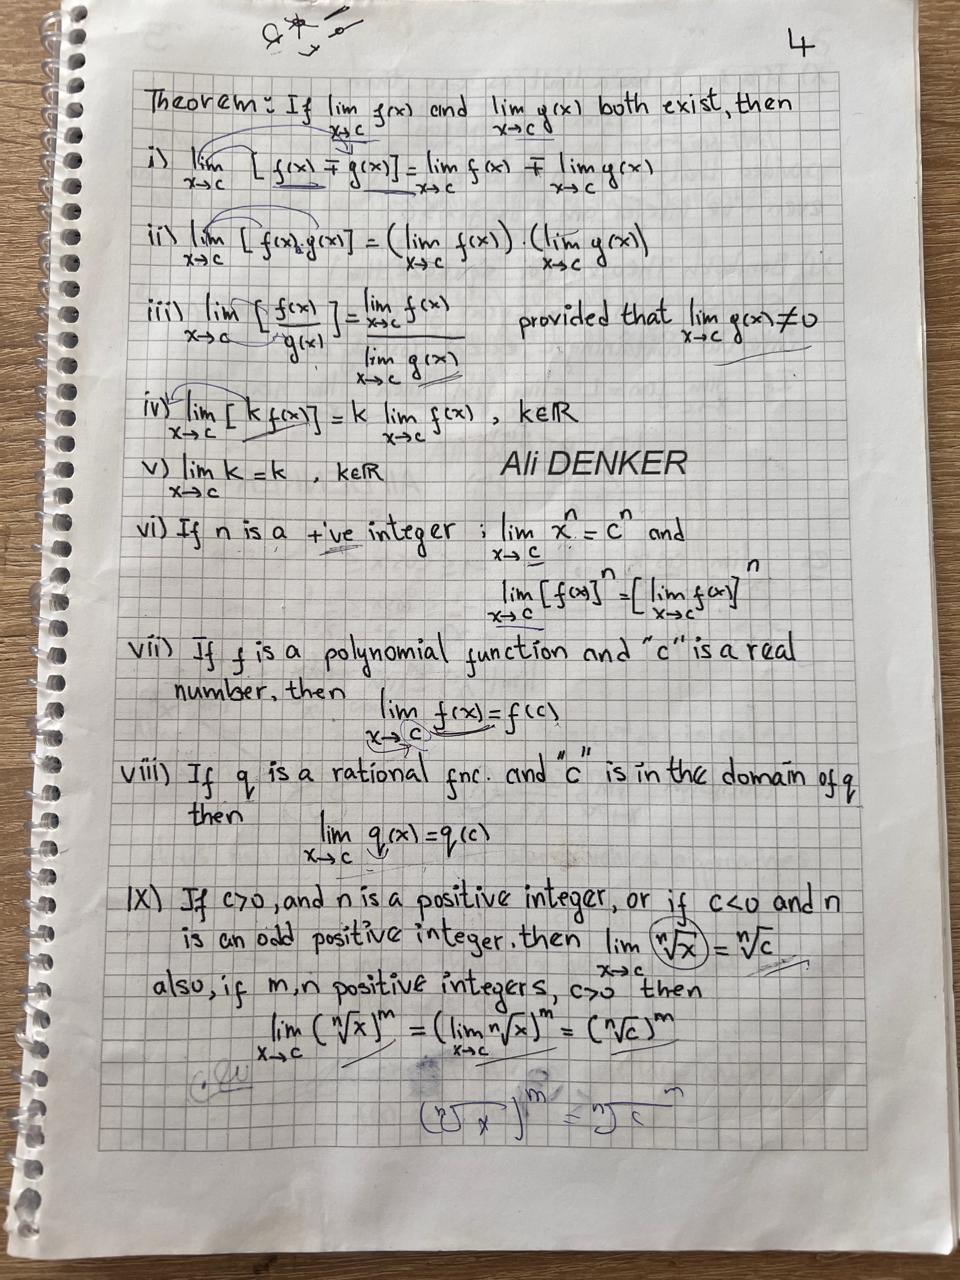 4
Theorem: If lim x→c f(x) and lim x→c g(x) both exist, then
i) lim x→c [f(x) ∓ g(x)] = lim x→c f(x) ∓ lim x→c g(x)
ii) lim x→c [f(x).g(x)] = (lim x→c f(x)) . (lim x→c g(x))
iii) lim x→c [f(x)/g(x)] = lim x→c f(x) / lim x→c g(x) provided that lim x→c g(x) ≠ 0
iv) lim x→c [k f(x)] = k lim x→c f(x) , k∈ℝ
Ali DENKER
v) lim x→c k = k , k∈ℝ
vi) If n is a +'ve integer ; lim x→c xⁿ = cⁿ and
lim x→c [f(x)]ⁿ = [lim x→c f(x)]ⁿ
vii) If f is a polynomial function and "c" is a real
number, then lim x→c f(x) = f(c)
viii) If q is a rational fnc. and "c" is in the domain of q
then
lim x→c q(x) = q(c)
IX) If c>0, and n is a positive integer, or if c<0 and n
is an odd positive integer, then lim x→c ⁿ√x = ⁿ√c
also, if m,n positive integers, c>0 then
lim x→c (ⁿ√x)ᵐ = (lim x→c ⁿ√x)ᵐ = (ⁿ√c)ᵐ